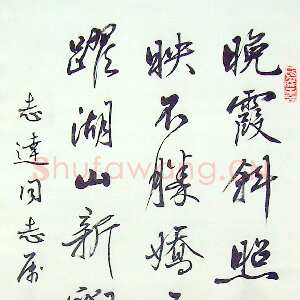 晚霞斜照
映不勝嬌
躍湖山新
志達同志屬
Shufawang.cn